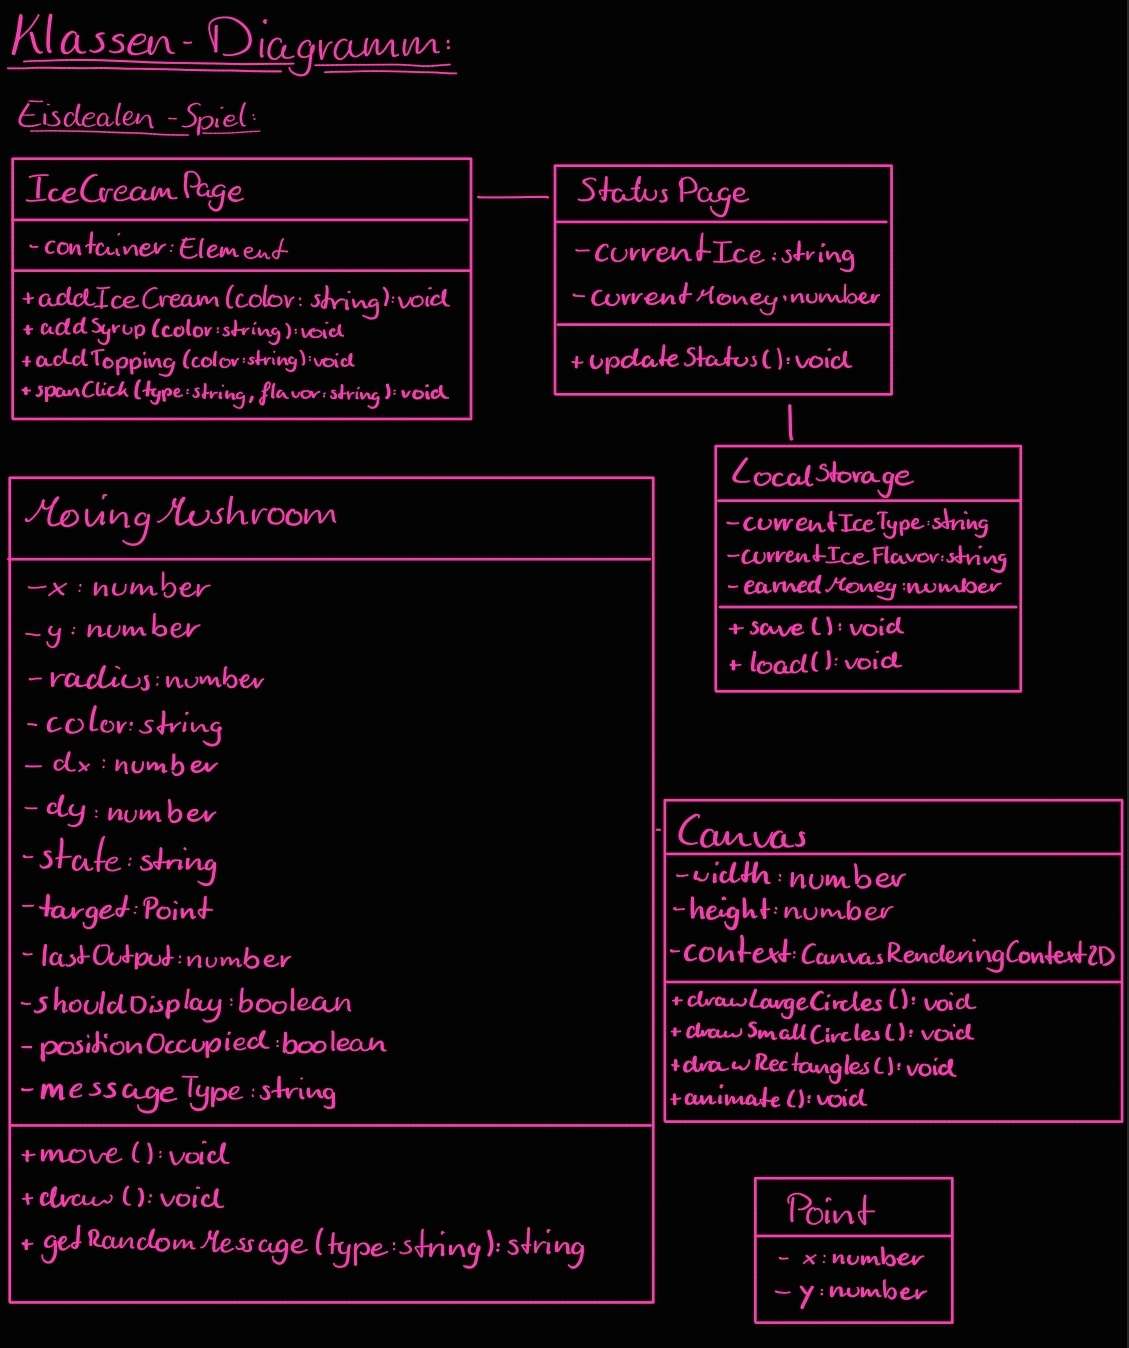 Klassen-Diagramm:
Eisdealen-Spiel:
IceCreamPage
-container:Element
+addIceCream(color:string):void
+addSyrup(color:string):void
+addTopping(color:string):void
+spanClick(type:string, flavor:string):void
StatusPage
-currentIce:string
-currentMoney:number
+updateStatus():void
LocalStorage
-currentIceType:string
-currentIceFlavor:string
-earnedMoney:number
+save():void
+load():void
MovingMushroom
-x:number
-y:number
-radius:number
-color:string
-dx:number
-dy:number
-state:string
-target:Point
-lastOutput:number
-shouldDisplay:boolean
-positionOccupied:boolean
-messageType:string
+move():void
+draw():void
+getRandomMessage(type:string):string
Canvas
-width:number
-height:number
-context:CanvasRenderingContext2D
+drawLargeCircles():void
+drawSmallCircles():void
+drawRectangles():void
+animate():void
Point
-x:number
-y:number